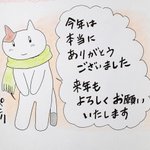 今年は
本当に
ありがとう
ございました
来年も
よろしくお願い
いたします